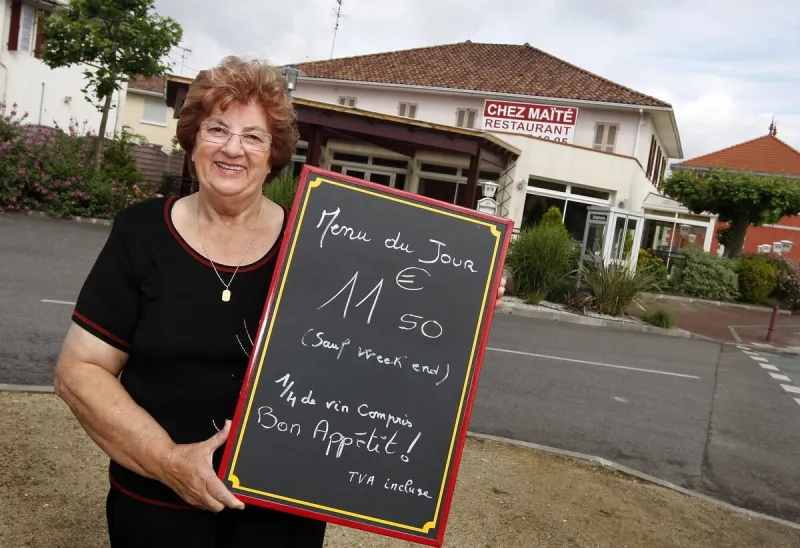 CHEZ MAÏTÉ
RESTAURANT
Menu du Jour
11 € 50
(Sauf Week end)
1/4 de vin Compris
Bon Appêtit !
TVA incluse